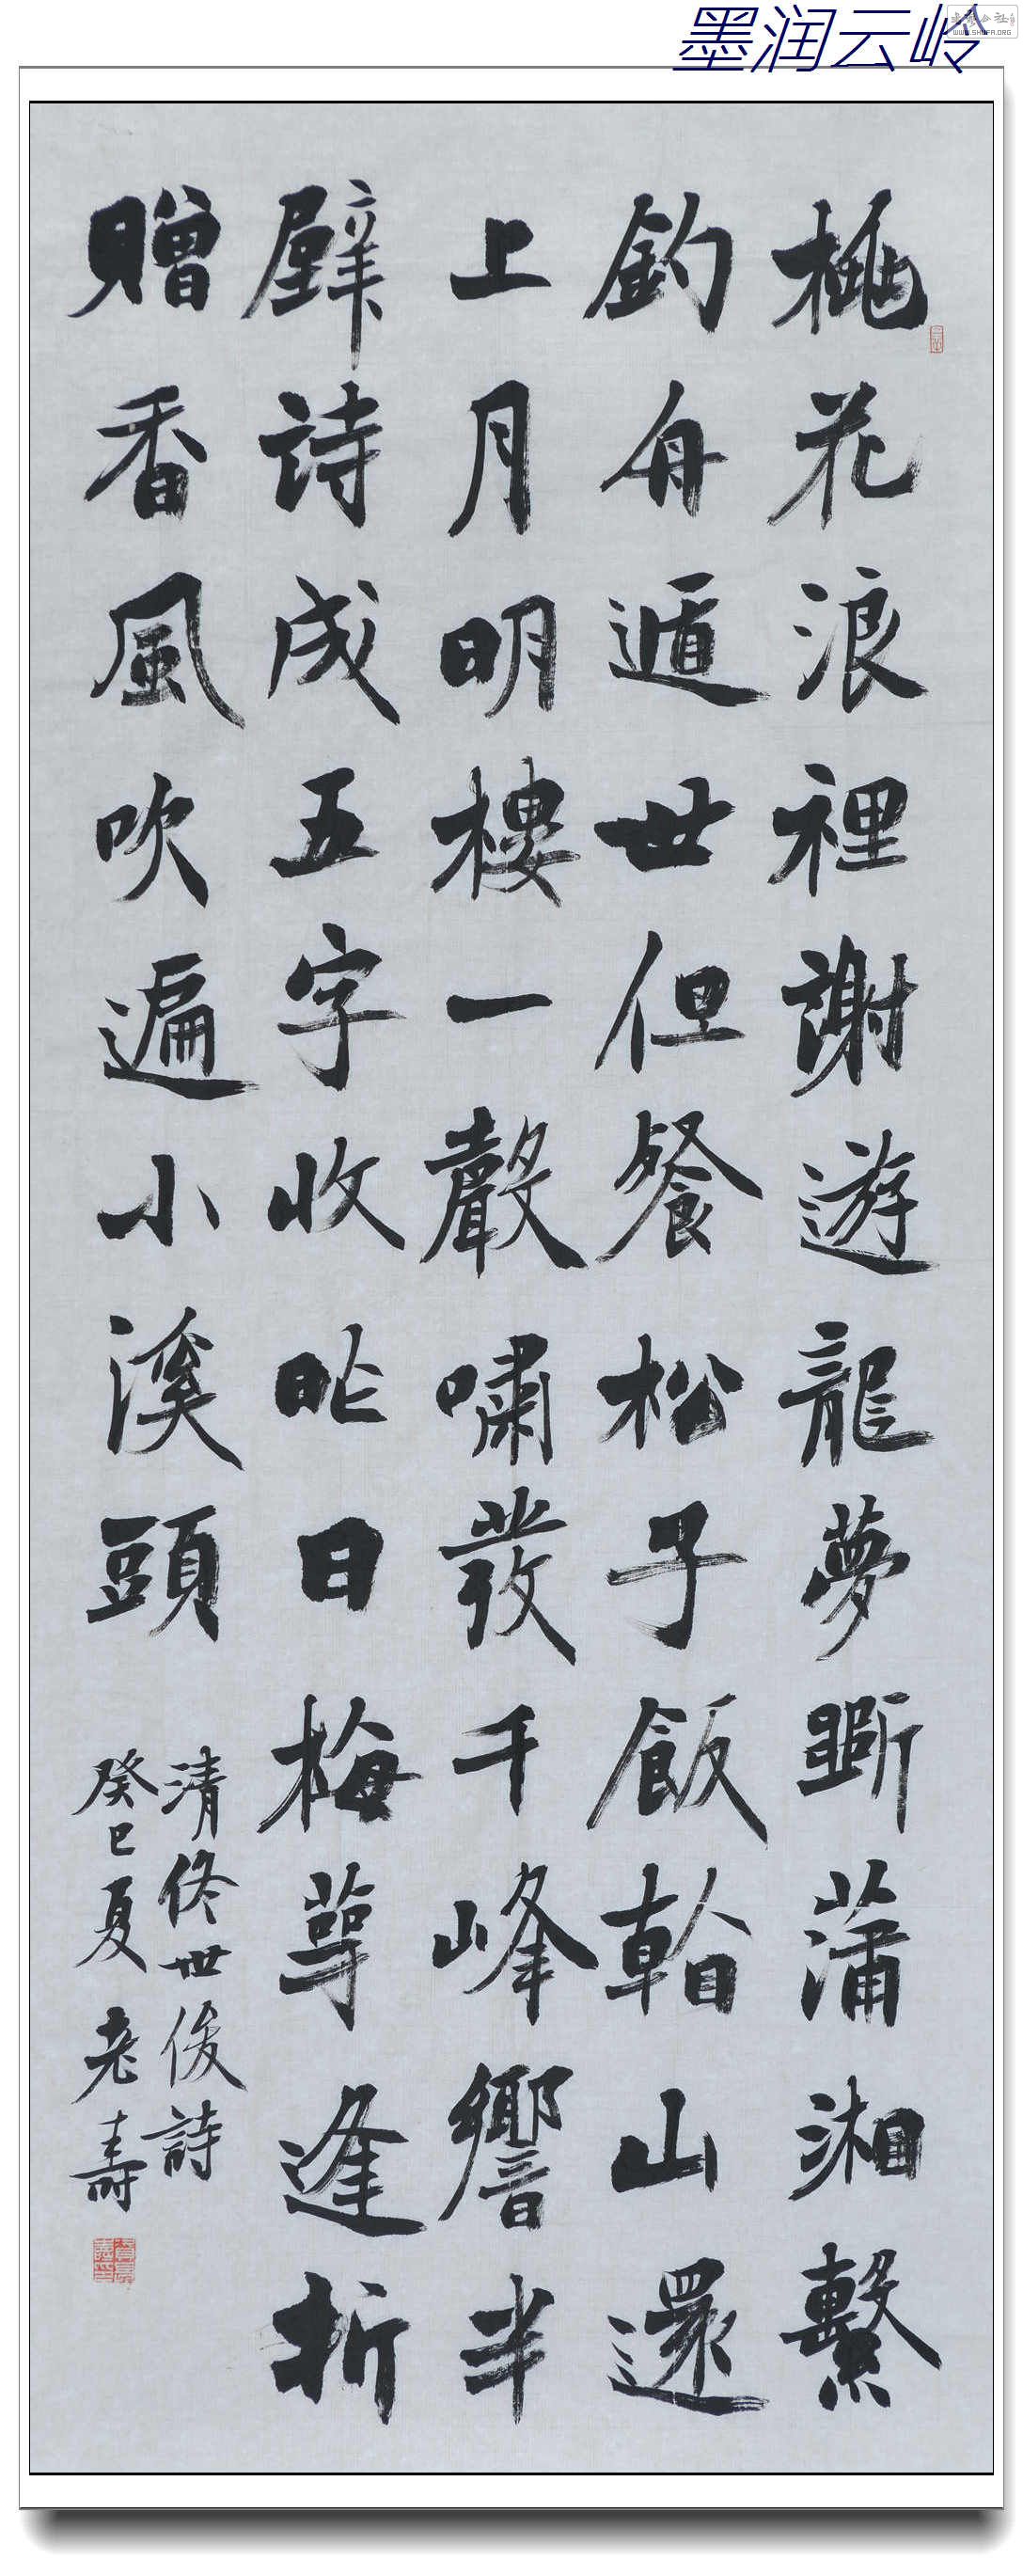 墨润云岭
WWW.SHUFA.ORG
桃花浪裡謝遊龍夢斷蒲湘繫
釣舟遁世但餐松子飯看山還
上月明樓一聲嘯發千峰響半
壁詩成五字收昨日梅萼逢折
贈香風吹遍小溪頭
清佟世俊詩
癸巳夏老壽